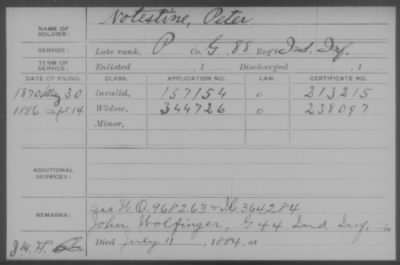 NAME OF SOLDIER: Notestine, Peter
SERVICE: Late rank, P Co. G, 88 Reg't Ind. Inf.
TERM OF SERVICE: Enlisted , 1 Discharged , 1
DATE OF FILING. CLASS. APPLICATION NO. LAW. CERTIFICATE NO.
1870 May 30 Invalid, 157154 o 213215
1886 Sept 14 Widow, 344726 o 238097
Minor,
ADDITIONAL SERVICES:
REMARKS: W.O. 968263 364284
John Wolfinger, G 44 Ind. Inf.
Died July 11, 1884, at